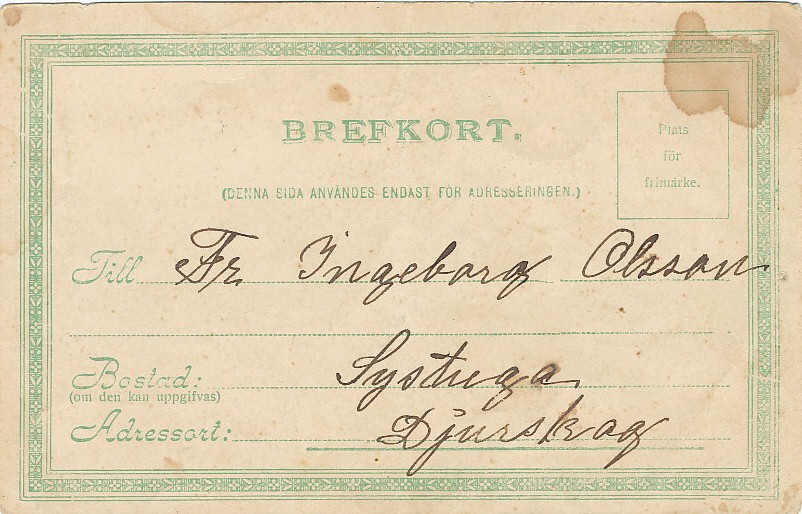 BREFKORT.
(DENNA SIDA ANVÄNDES ENDAST FÖR ADRESSERINGEN.)
Plats
för
frimärke.
Till Fr. Ingeborg Olsson
Bostad: Systuga
(om den kan uppgifvas)
Adressort: Djurskog